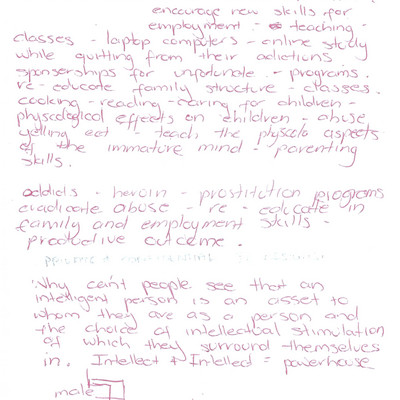 encourage new skills for
employment - teaching -
classes - laptop computers - online study
while quitting from their adictions
sponserships for unfortunate - programs.
re-educate family structure - classes.
cooking - reading - caring for children -
physcological effects on children - abuse
yelling ect - teach the physcolo aspects
of the immature mind - parenting
skills.
addicts - heroin - prostitution programs
eradicate abuse - re - educate in
family and employment skills -
productive outcome.
Why cein't people see that an
intelligent person is an asset to
whom they are as a person and
the choice of intellectual stimulation
of which they surround themselves
in. Intellect + Intellect = powerhouse
male